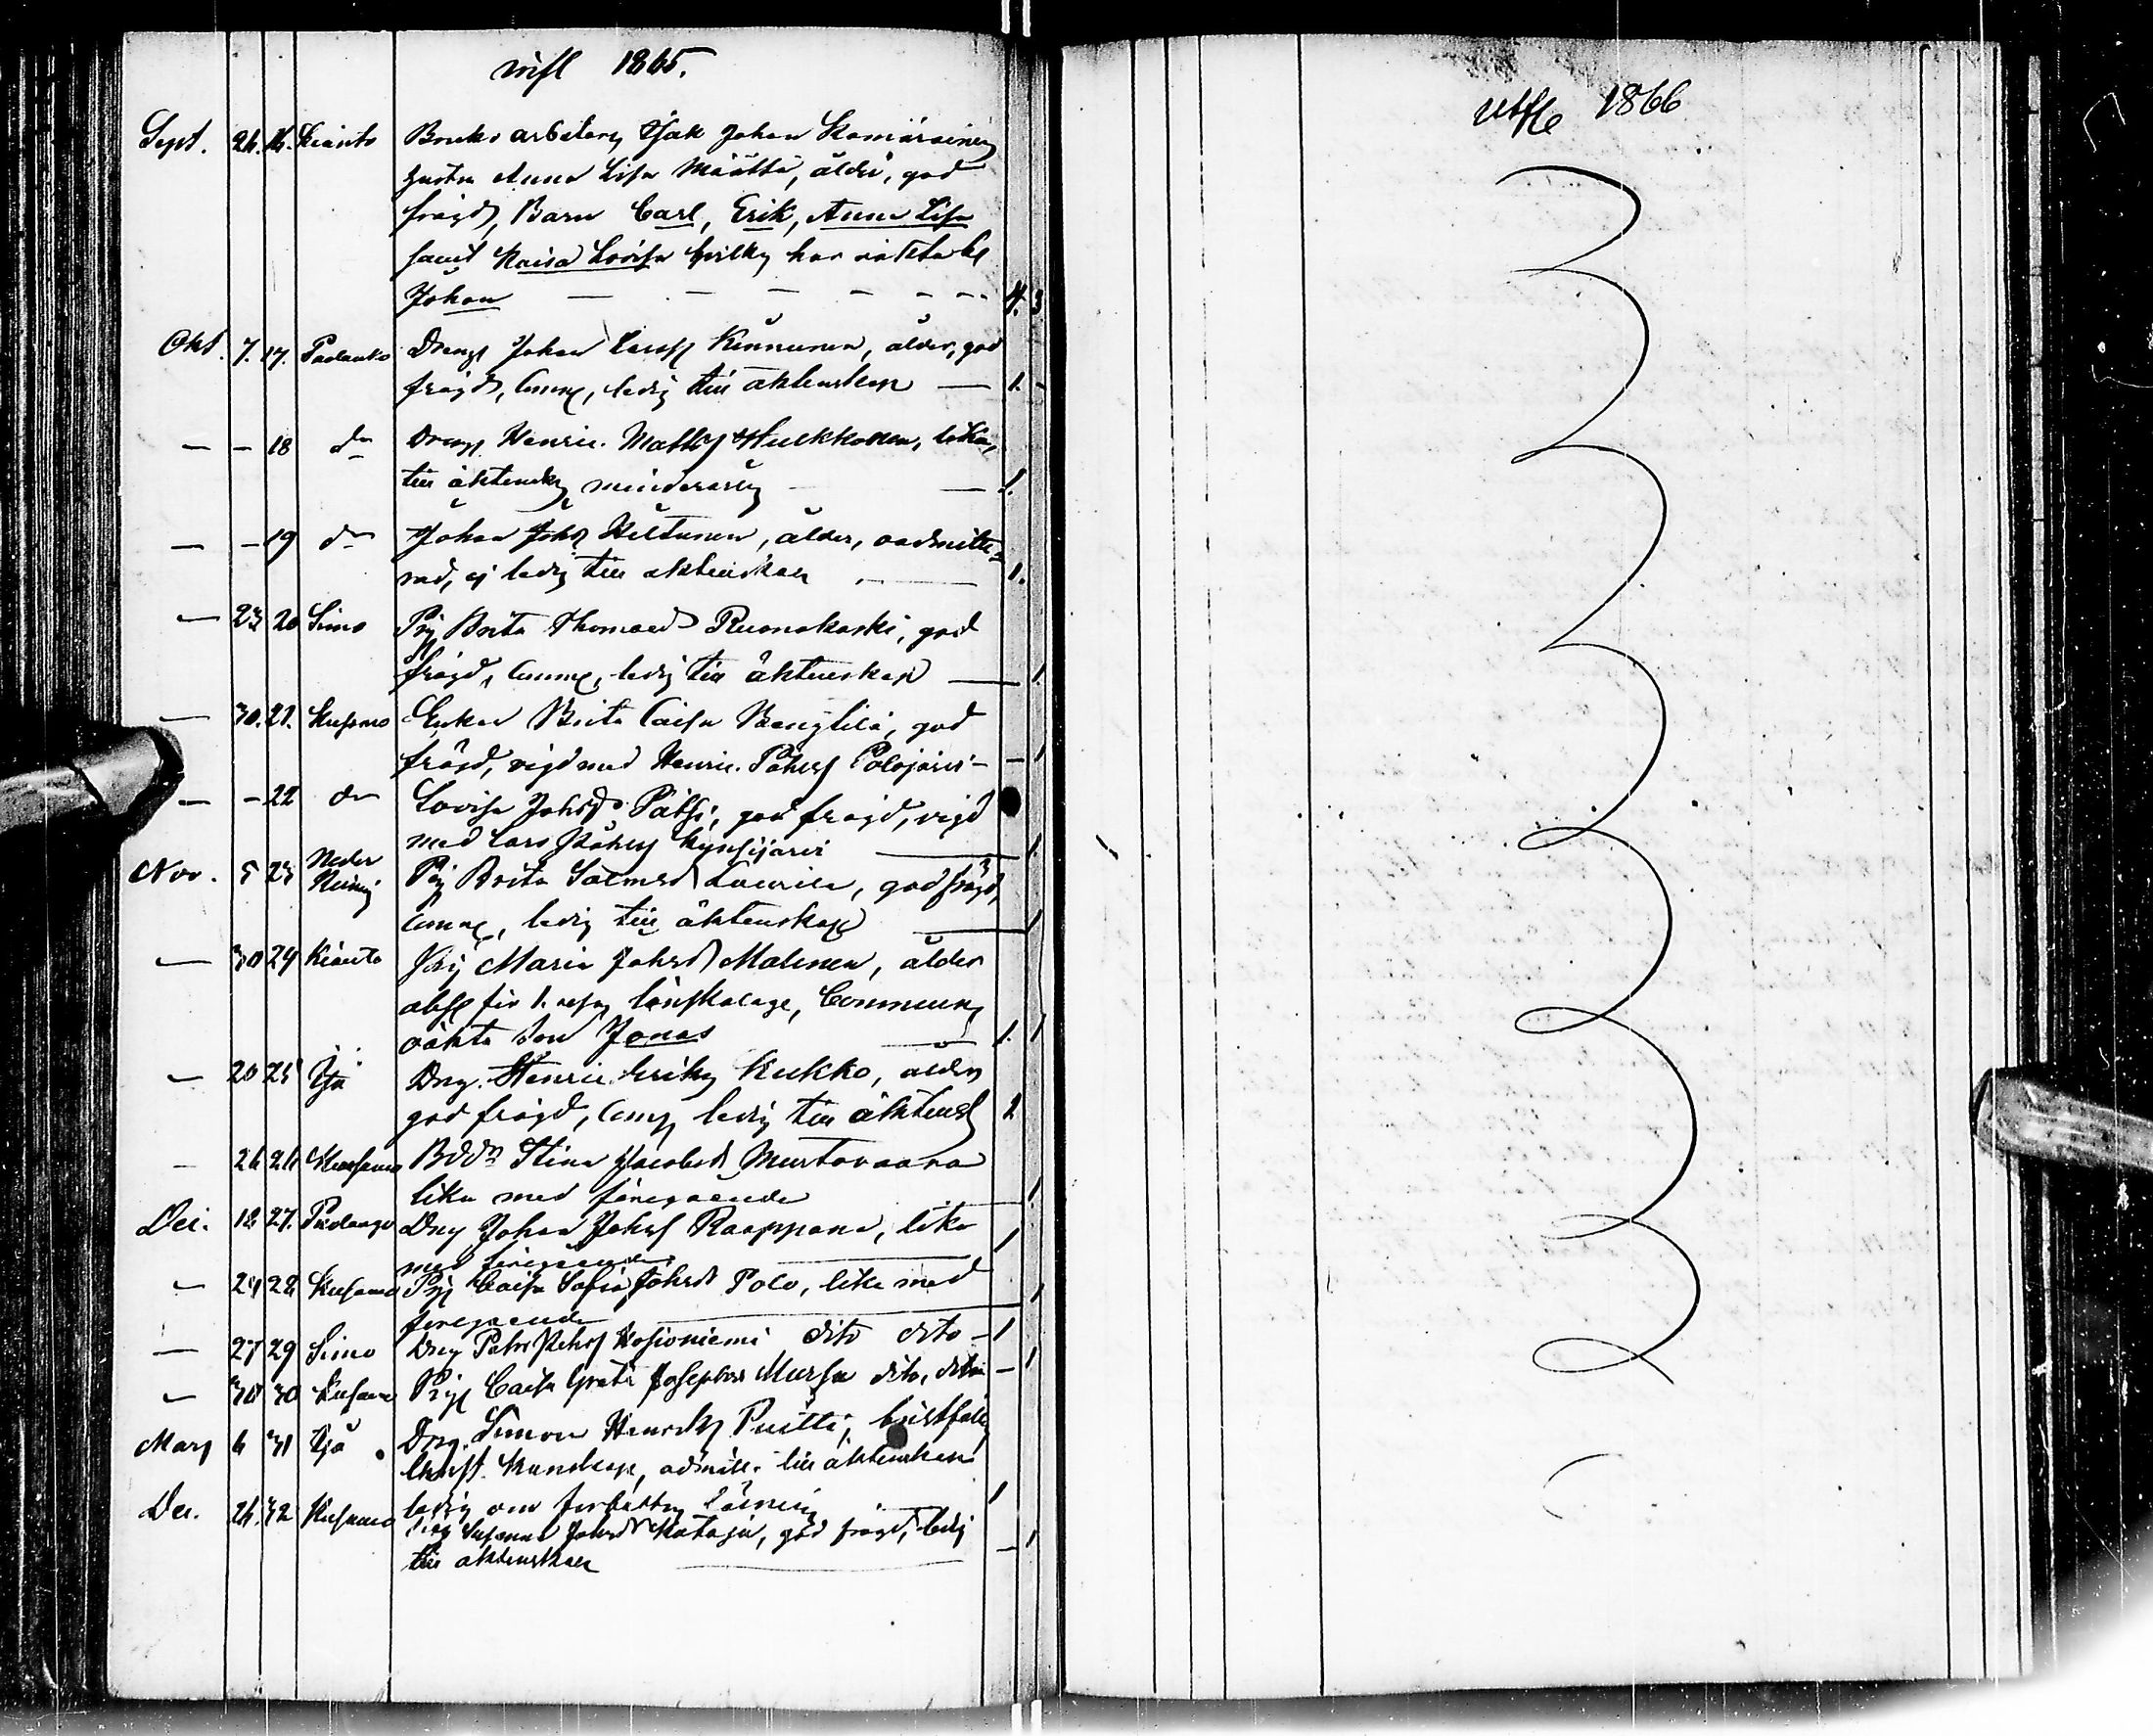 infl 1865.
Sept. 26. 16. Kianto Bruks arbetaren Isak Johan Komäräinen
hustru Anna Lisa Määttä, ålder, god
frägd, Barn Carl, Erik, Anna Lisa
samt Kaisa Lovisa hvilken har oäkta
Johan — — — — — — 4. 3
Okt. 7. 17. Pudasko Drengen Johan Larss Kinnunen, ålder, god
frägd, Comm, ledig till äktenskap — 1. -
— — 18 do Dreng Henric Matts Hukkonen, lika,
till äktensk minderårig — — 1.
— — 19 do Johan Johs Heltunen, ålder, oadmitte=
rad, ej ledig till äktenskap — 1.
— 23 20 Simo Pig Brita Thomasd Ruonakoski, god
frägd, Comm, ledig till äktenskap — 1.
— 30. 21. Kusamo Enkan Brita Caisa Bengtilä, god
frägd, vigd med Henric Pehrs Polojärvi — — 1
— — 22 do Lovisa Johsd Pätsi, god fragd, vigd
med Lars Pehrs Kynsijärvi — 1.
Nov. 5 23 Neder Pig Brita Salmsd Laurila, god frägd,
Comm, ledig till äktenskap — 1
— 30 24 Kianto Pig Maria Johsd Malinen, ålder
abs för 1. resan lönskaläge, Commun,
oäkta son Jonas — 1. 1
— 20 25 Ijå Dreng. Henric Eriks Kukko, ålder
god frägd, Comm ledig till äktensk 1
— 26 26 Kuusamo Bdd Stina Jacobsd Murtovaara
lika med föregående — 1
Dec. 12 27. Pudasjo Dreng Johan Johs Raappana, lika
med föregående — 1
— 24 28 Kusamo Pig Caisa Sofia Johsd Polo, lika med
föregående — 1
— 27 29 Simo Dreng Petter Pehrs Hosioniemi dito dito — 1
— 30 30 Kusamo Pig Caisa Greta Josephsd Mursu dito, dito — 1
Mars 6 31 Ijå Dreng. Simon Henriks Puitti, bristfällig
Christ. Kunskap, admitt. till äktenskap
ledig om förbättrg läsning 1
Dec. 26. 32 Kusamo Pig Susanna Johsd Kataja, god frägd, ledig
till äktenskap — — 1
utfl 1866